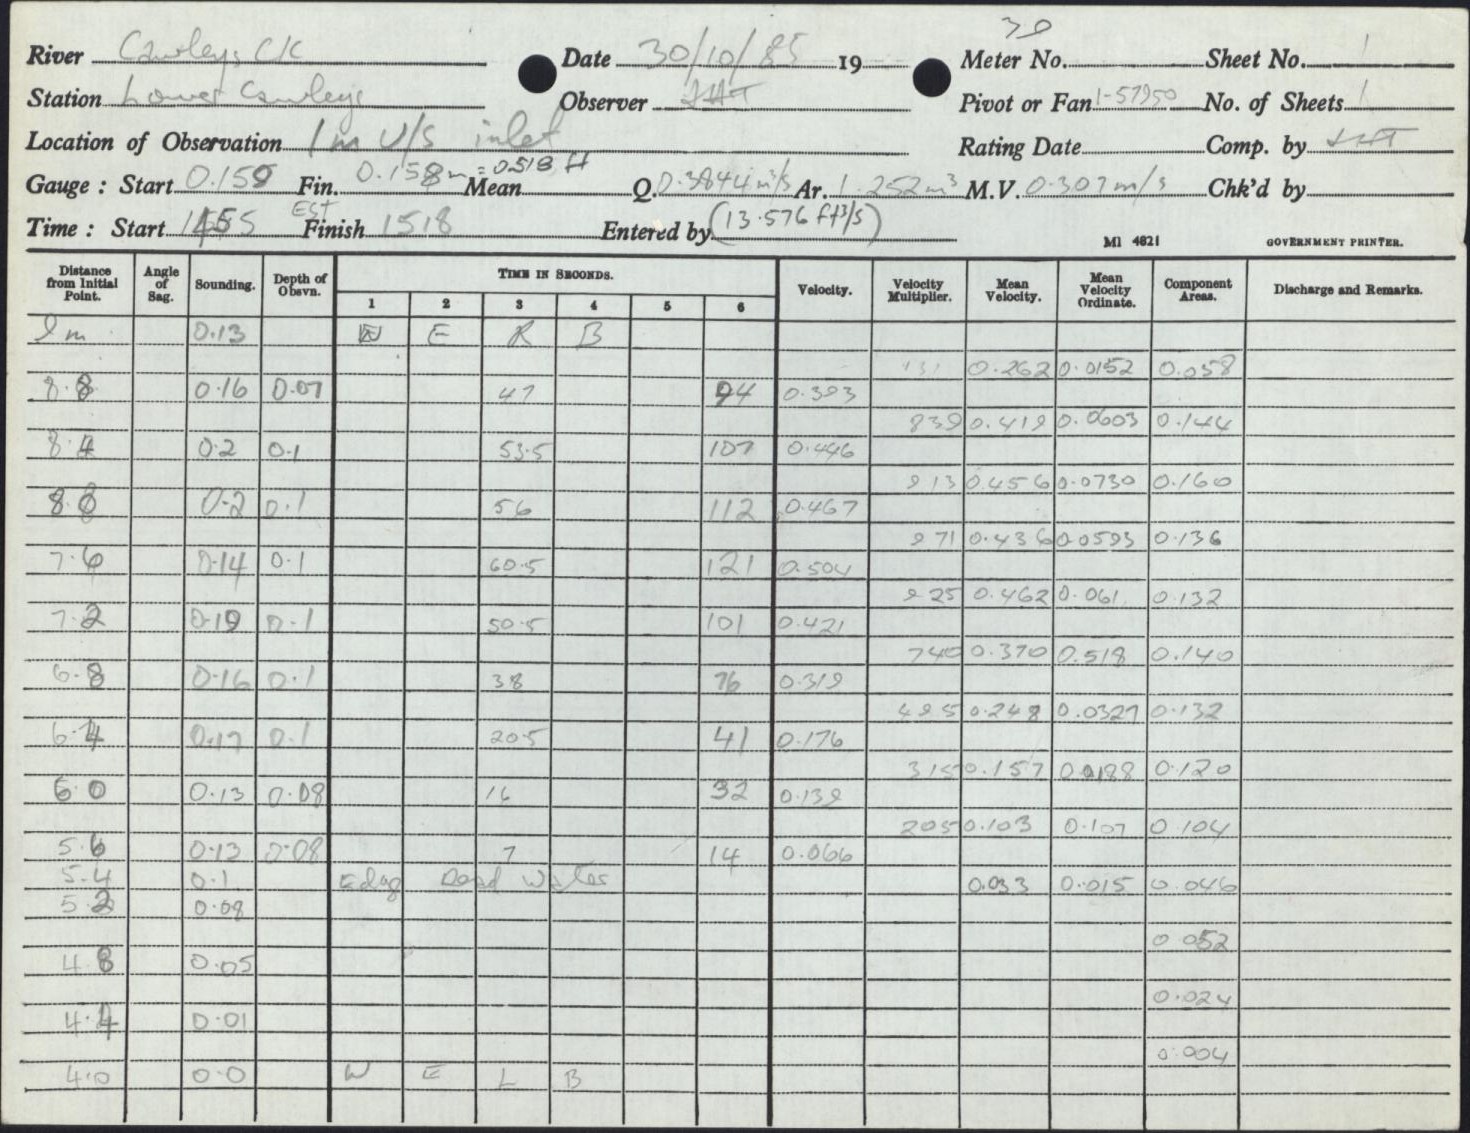 30
River Cawleys CK Date 30/10/85 19 Meter No. Sheet No. 1
Station Lower Cawleys Observer JHT Pivot or Fan 1-57950 No. of Sheets 1
Location of Observation 1m U/S inlet Rating Date Comp. by JHT
Gauge: Start 0.159 Fin. 0.158m = 0.518 ft Mean Q. 0.3844 m³/s Ar. 1.252 m³ M.V. 0.307 m/s Chk'd by
Time: Start 1455 EST Finish 1518 Entered by (13.576 ft³/s)
MI 4821 GOVERNMENT PRINTER.
Distance from Initial Point. Angle of Sag. Sounding. Depth of Obsvn. TIME IN SECONDS. Velocity. Velocity Multiplier. Mean Velocity. Mean Velocity Ordinate. Component Areas. Discharge and Remarks.
1 2 3 4 5 6
9m 0.13 W E R B
131 0.262 0.0152 0.058
8.8 0.16 0.07 47 94 0.393
839 0.419 0.0603 0.144
8.4 0.2 0.1 53.5 107 0.446
913 0.456 0.0730 0.160
8.0 0.2 0.1 56 112 0.467
971 0.436 0.0593 0.136
7.6 0.14 0.1 60.5 121 0.504
925 0.462 0.061 0.132
7.2 0.19 0.1 50.5 101 0.421
740 0.370 0.518 0.140
6.8 0.16 0.1 38 76 0.319
495 0.248 0.0327 0.132
6.4 0.17 0.1 20.5 41 0.176
315 0.157 0.0188 0.120
6.0 0.13 0.08 16 32 0.139
205 0.103 0.107 0.104
5.6 0.13 0.08 7 14 0.066
5.4 0.1 Edge Dead Water 0.033 0.015 0.046
5.2 0.08
0.052
4.8 0.05
0.024
4.4 0.01
0.004
4.0 0.0 W E L B